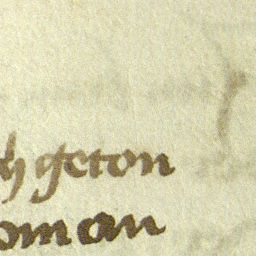 h geton
oman